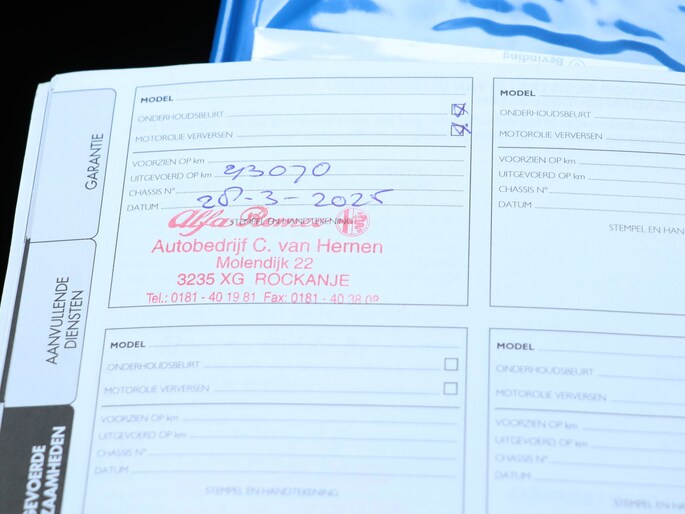 Bevinding
MODEL
ONDERHOUDSBEURT
MOTOROLIE VERVERSEN
VOORZIEN OP km
UITGEVOERD OP km 43070
CHASSIS N°
DATUM 28-3-2025
STEMPEL EN HANDTEKENING
Alfa Romeo
Autobedrijf C. van Hernen
Molendijk 22
3235 XG ROCKANJE
Tel.: 0181 - 40 19 81 Fax: 0181 - 40 38 09
MODEL
ONDERHOUDSBEURT
MOTOROLIE VERVERSEN
VOORZIEN OP km
UITGEVOERD OP km
CHASSIS N°
DATUM
STEMPEL EN HAND
GARANTIE
AANVULLENDE
DIENSTEN
GEVOERDE
ZAAMHEDEN
MODEL
ONDERHOUDSBEURT
MOTOROLIE VERVERSEN
VOORZIEN OP km
UITGEVOERD OP km
CHASSIS N°
DATUM
STEMPEL EN HANDTEKENING
MODEL
ONDERHOUDSBEURT
MOTOROLIE VERVERSEN
VOORZIEN OP km
UITGEVOERD OP km
CHASSIS N°
DATUM
STEMPEL EN HAN